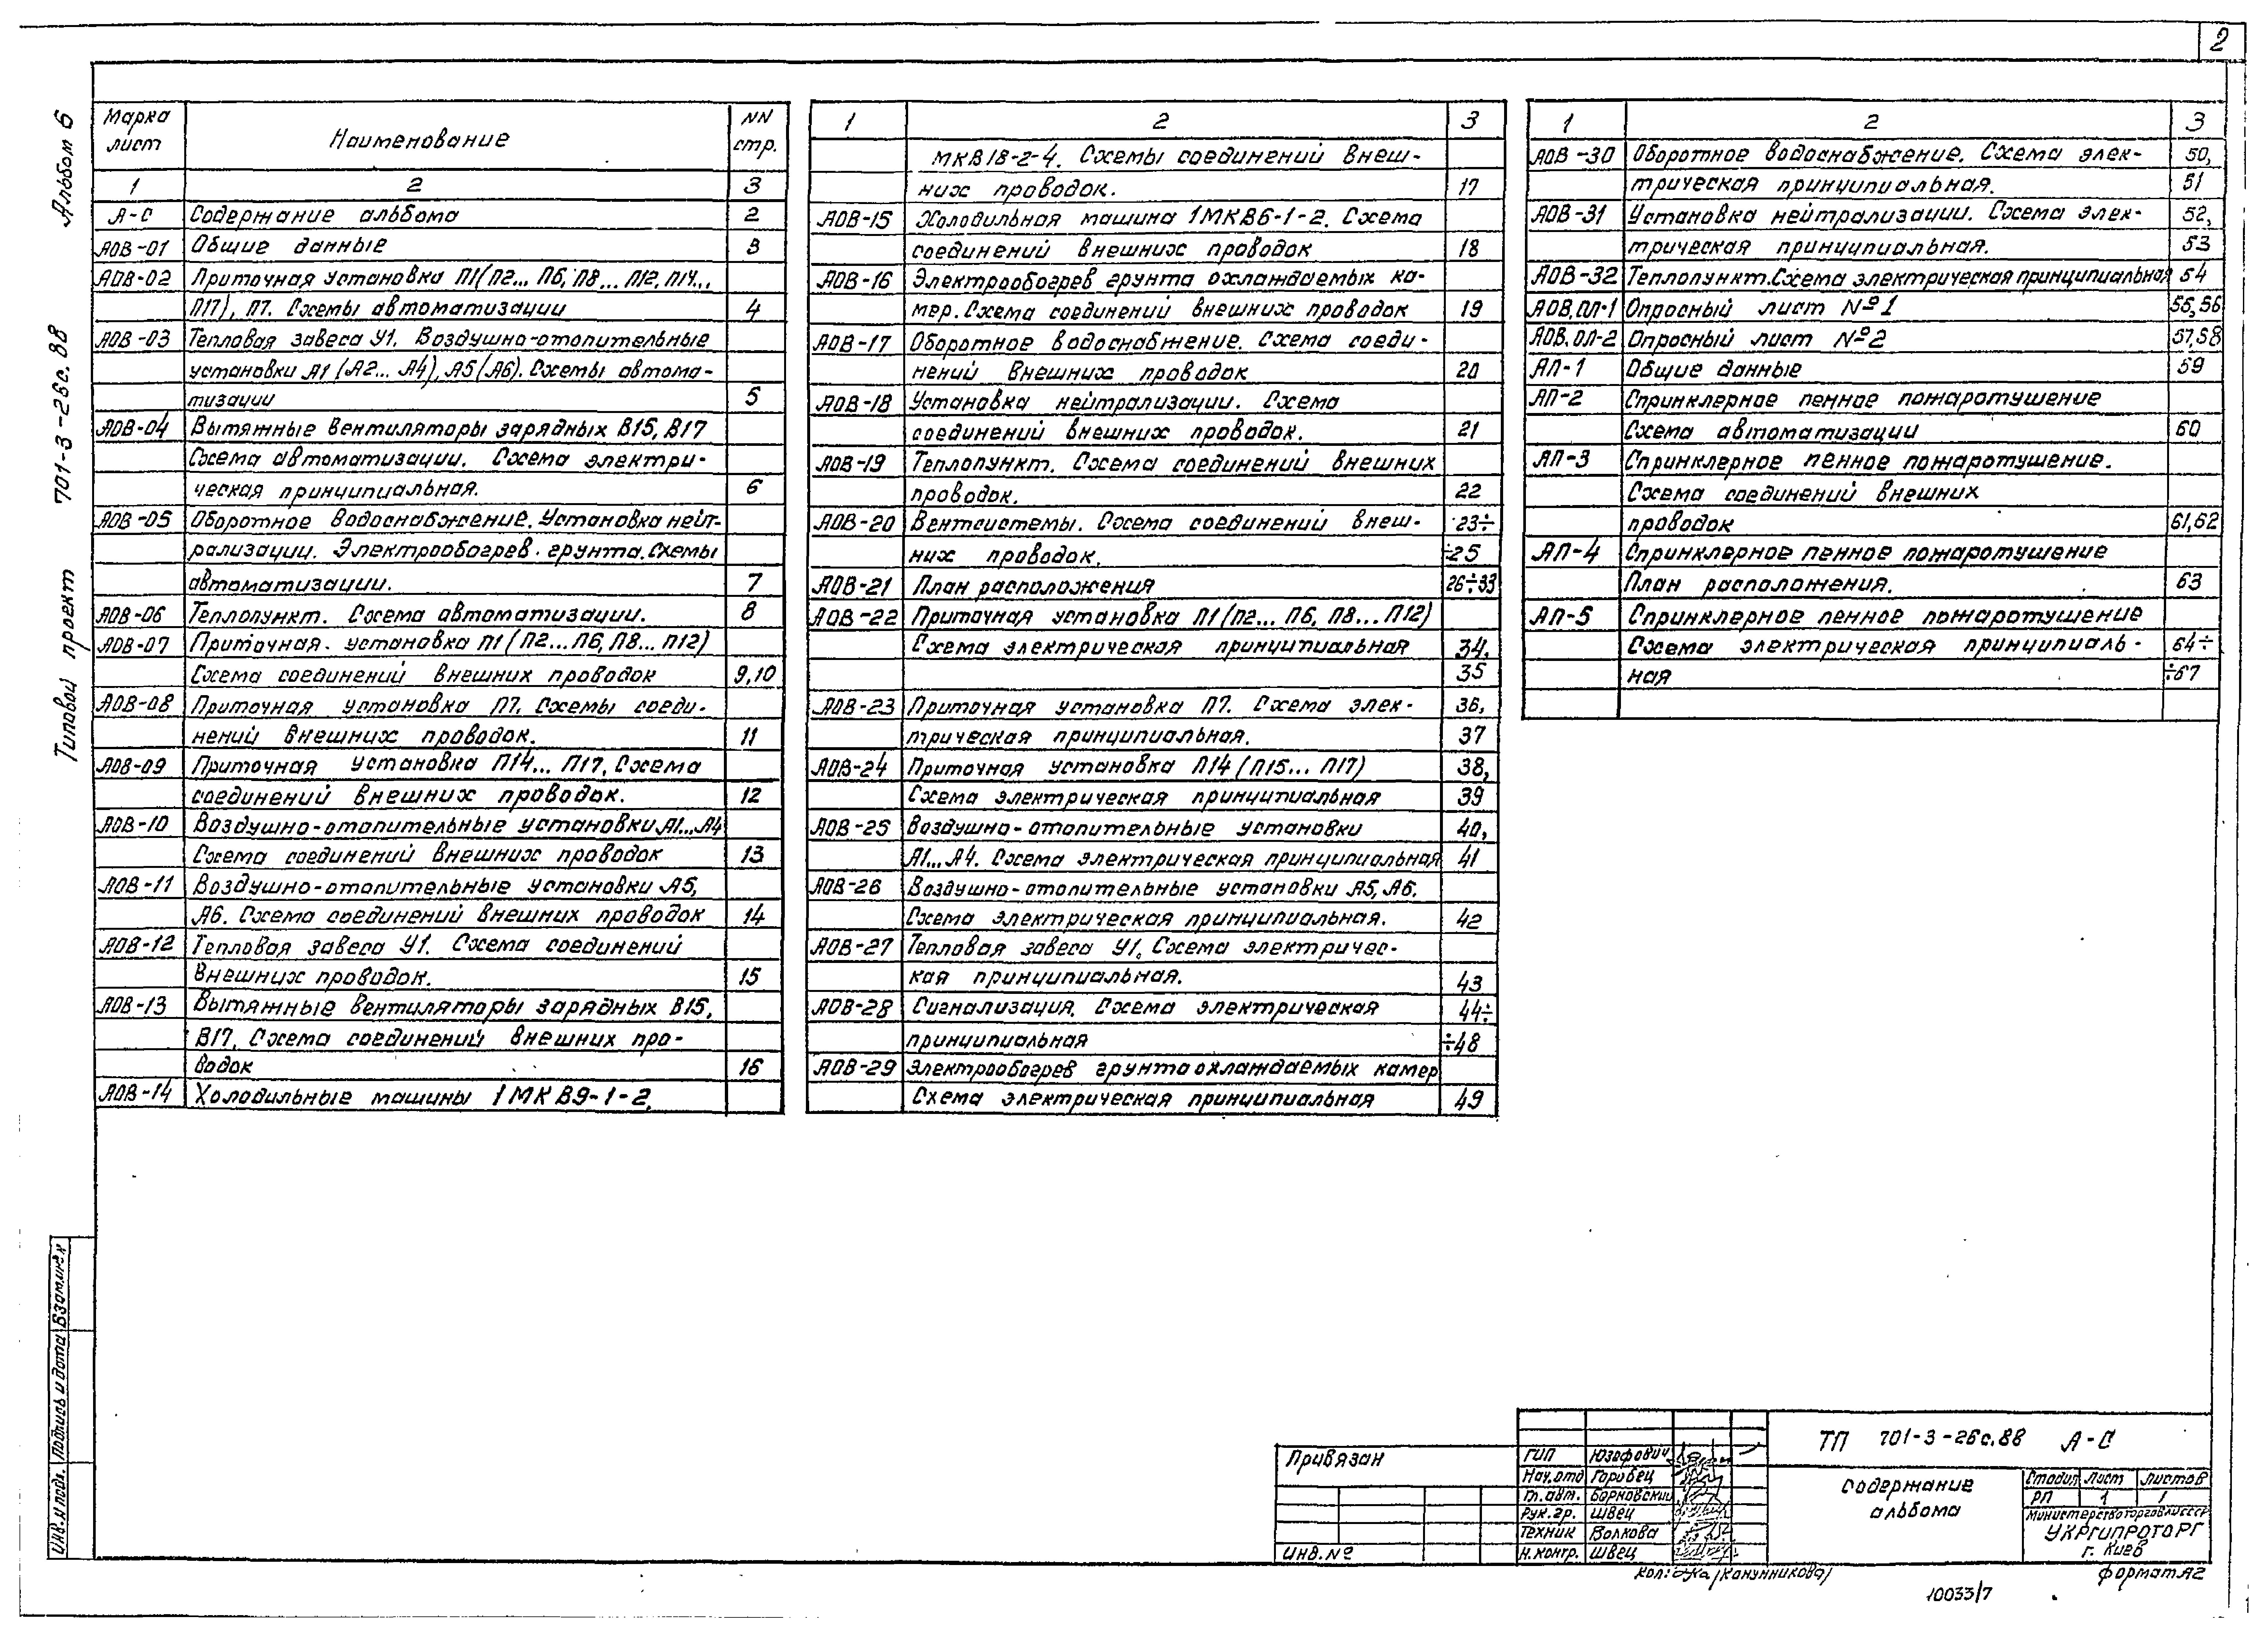 2
Альбом 6
701-3-26с.88
Типовой проект
Марка лист | Наименование | NN стр.
1 | 2 | 3
А-С | Содержание альбома | 2
АОВ-01 | Общие данные | 3
АОВ-02 | Приточная установка П1(П2... П6, П8... П12, П14...
П17), П7. Схемы автоматизации | 4
АОВ-03 | Тепловая завеса У1. Воздушно-отопительные
установки А1 (А2... А4), А5(А6). Схемы автома-
тизации | 5
АОВ-04 | Вытяжные вентиляторы зарядных В15, В17
Схема автоматизации. Схема электри-
ческая принципиальная. | 6
АОВ-05 | Оборотное водоснабжение. Установка нейт-
рализации. Электрообогрев грунта. Схемы
автоматизации. | 7
АОВ-06 | Теплопункт. Схема автоматизации. | 8
АОВ-07 | Приточная установка П1 (П2... П6, П8... П12)
Схема соединений внешних проводок | 9,10
АОВ-08 | Приточная установка П7. Схемы соеди-
нений внешних проводок. | 11
АОВ-09 | Приточная установка П14... П17. Схема
соединений внешних проводок. | 12
АОВ-10 | Воздушно-отопительные установки А1... А4
Схема соединений внешних проводок | 13
АОВ-11 | Воздушно-отопительные установки А5,
А6. Схема соединений внешних проводок | 14
АОВ-12 | Тепловая завеса У1. Схема соединений
внешних проводок. | 15
АОВ-13 | Вытяжные вентиляторы зарядных В15,
В17. Схема соединений внешних про-
водок | 16
АОВ-14 | Холодильные машины 1МКВ9-1-2,
1 | 2 | 3
МКВ18-2-4. Схемы соединений внеш-
них проводок. | 17
АОВ-15 | Холодильная машина 1МКВ6-1-2. Схема
соединений внешних проводок | 18
АОВ-16 | Электрообогрев грунта охлаждаемых ка-
мер. Схема соединений внешних проводок | 19
АОВ-17 | Оборотное водоснабжение. Схема соеди-
нений внешних проводок | 20
АОВ-18 | Установка нейтрализации. Схема
соединений внешних проводок. | 21
АОВ-19 | Теплопункт. Схема соединений внешних
проводок. | 22
АОВ-20 | Вентсистемы. Схема соединений внеш- | 23÷
них проводок. | ÷25
АОВ-21 | План расположения | 26÷33
АОВ-22 | Приточная установка П1 (П2... П6, П8... П12)
Схема электрическая принципиальная | 34,
35
АОВ-23 | Приточная установка П7. Схема элек- | 36,
трическая принципиальная. | 37
АОВ-24 | Приточная установка П14 (П15... П17) | 38,
Схема электрическая принципиальная | 39
АОВ-25 | Воздушно-отопительные установки | 40,
А1... А4. Схема электрическая принципиальная | 41
АОВ-26 | Воздушно-отопительные установки А5, А6.
Схема электрическая принципиальная. | 42
АОВ-27 | Тепловая завеса У1. Схема электричес-
кая принципиальная. | 43
АОВ-28 | Сигнализация. Схема электрическая | 44÷
принципиальная | ÷48
АОВ-29 | Электрообогрев грунта охлаждаемых камер
Схема электрическая принципиальная | 49
1 | 2 | 3
АОВ-30 | Оборотное водоснабжение. Схема элек- | 50,
трическая принципиальная. | 51
АОВ-31 | Установка нейтрализации. Схема элек- | 52,
трическая принципиальная. | 53
АОВ-32 | Теплопункт. Схема электрическая принципиальная | 54
АОВ.ОЛ-1 | Опросный лист №1 | 55,56
АОВ.ОЛ-2 | Опросный лист №2 | 57,58
АП-1 | Общие данные | 59
АП-2 | Спринклерное пенное пожаротушение
Схема автоматизации | 60
АП-3 | Спринклерное пенное пожаротушение.
Схема соединений внешних
проводок | 61,62
АП-4 | Спринклерное пенное пожаротушение
План расположения. | 63
АП-5 | Спринклерное пенное пожаротушение
Схема электрическая принципиаль- | 64÷
ная | ÷67
Инв. N подл. | Подпись и дата | Взам.инв.N
Привязан
Инв. №
ГИП | Юзефович
Нач.отд | Горибец
Гл.авт. | Барновский
Рук.гр. | Швец
Техник | Волкова
Н.контр. | Швец
ТП 701-3-26с.88 А-С
Содержание
альбома
Стадия | Лист | Листов
РП | 1 | 1
Министерство торговли СССР
УКРГИПРОТОРГ
г. Киев
Кол: (Канунникова)
формат А2
10033/7